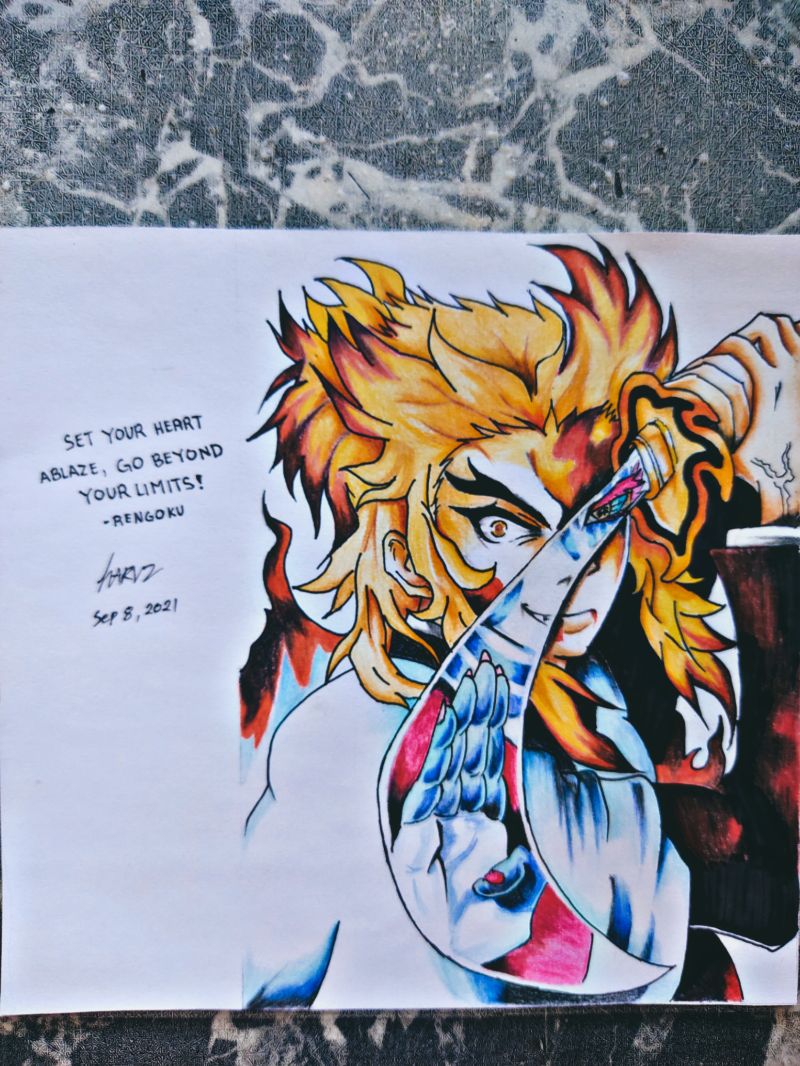 SET YOUR HEART
ABLAZE, GO BEYOND
YOUR LIMITS!
-RENGOKU
HARVZ
Sep 8, 2021